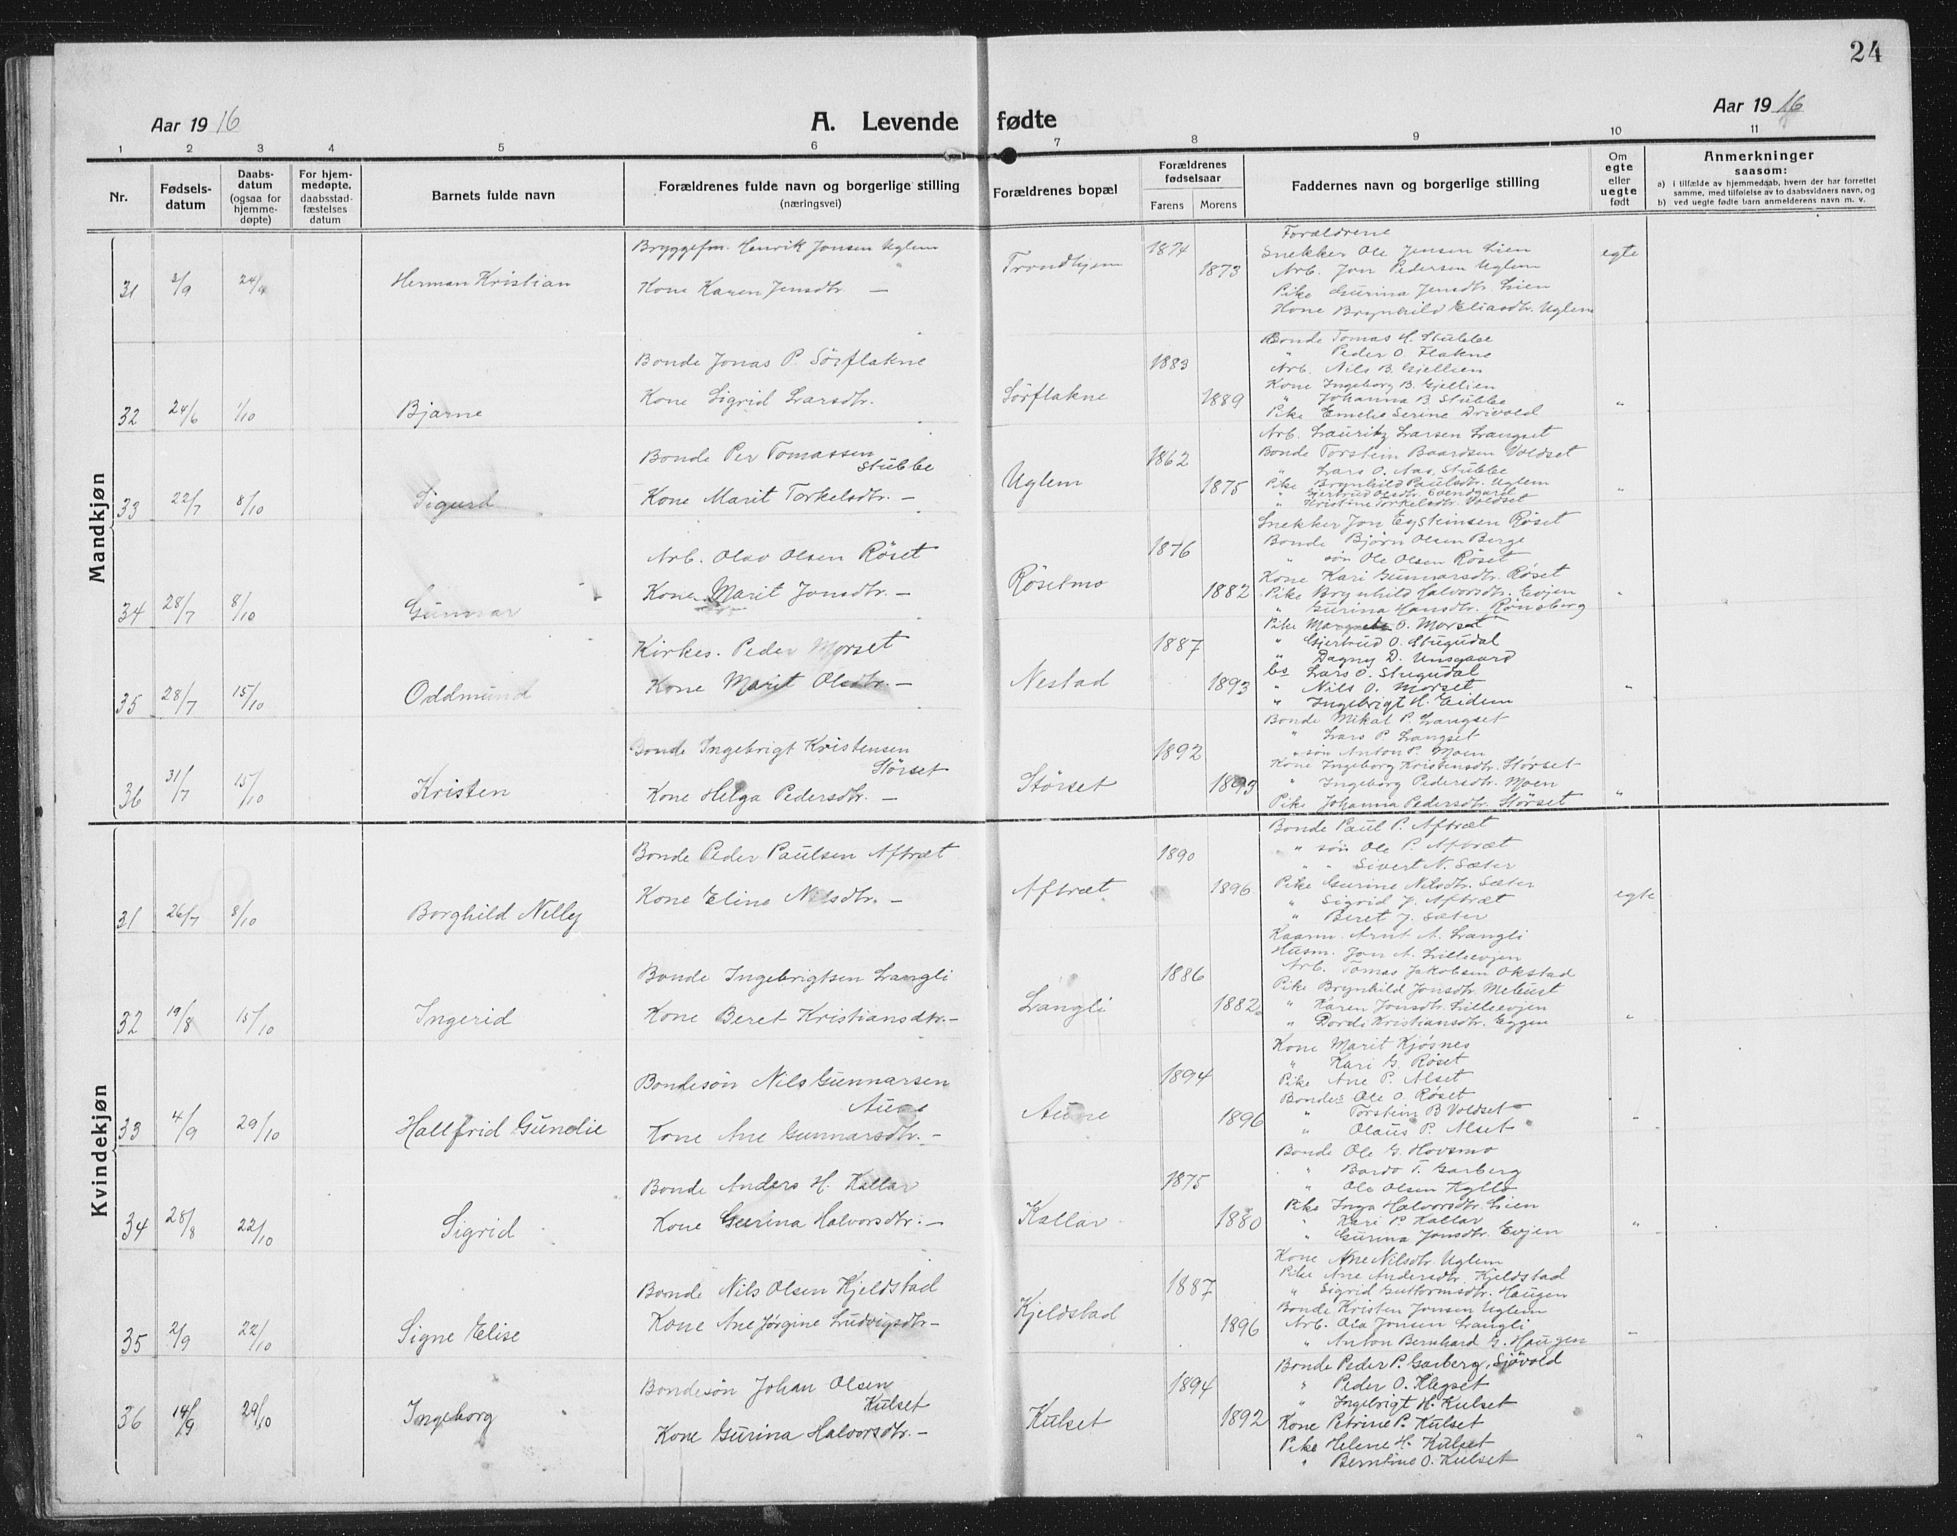 24
Aar 1916
A. Levende fødte
Aar 1916
1 2 3 4 5 6 7 8 9 10 11
Nr.
Fødsels-
datum
Daabs-
datum
(ogsaa for
hjemme-
døpte)
For hjem-
medøpte,
daabsstad-
fæstelses
datum
Barnets fulde navn
Forældrenes fulde navn og borgerlige stilling
(næringsvei)
Forældrenes bopæl
Forældrenes
fødselsaar
Farens Morens
Faddernes navn og borgerlige stilling
Om
egte
eller
uegte
født
Anmerkninger
saasom:
a) i tilfælde av hjemmedaab, hvem der har forrettet
samme, med tilføielse av to daabsvidners navn, og
b) ved uegte fødte barn anmelderens navn m. v.
Mandkjøn
31 3/9 24/9 Herman Kristian
Bryggefm. Henrik Jonsen Uglem
Kone Karen Jensdtr. —
Trondhjem 1874 1873
Forældrene
Snekker Ole Jensen Lien
Arb. Jon Pedersen Uglem
Pike Gurina Jensdtr. Lien
Kone Brynhild Eliasdtr. Uglem
egte
32 24/6 1/10 Bjarne
Bonde Jonas P. Sörflakne
Kone Sigrid Larsdtr.
Sörflakne 1883 1889
Bonde Tomas H. Stubbe
" Peder O. Flakne
Arb. Nils B. Gjellien
Kone Ingeborg B. Gjellien
" Johanna B. Stubbe
Pike Emelie Serine Drivold
"
33 22/7 8/10 Sigurd
Bonde Per Tomassen
Stubbe
Kone Marit Torkelsdtr. —
Uglem 1862 1875
Arb. Lauritz Larsen Langset
Bonde Torstein Baardsen Voldset
" Lars O. Aas, Stubbe
Pike Brynhild Paulsdtr. Uglem
" Gjertrud Olsdtr. Evendgard
" Kristine Torkelsdtr. Voldset
"
34 28/7 8/10 Gunnar
Arb. Olav Olsen Röset
Kone Marit Jonsdtr. —
Rösetmo 1876 1882
Snekker Jon Eysteinsen Röset
Bonde Björn Olsen Berge
" sön Ole Olsen Röset
Kone Kari Gunnarsdtr. Röset
Pike Brynhild Halvorsdtr. Evjen
" Gurina Hansdtr. Rönsberg
"
35 28/7 15/10 Oddmund
Kirkes. Peder Morset
Kone Marit Olsdtr. —
Nestad 1887 1893
Pike Margrete O. Morset
" Gjertrud O. Stugudal
" Dagny D. Unsgaard
bs Lars O. Stugudal
" Nils O. Morset
" Ingebrigt H. Eidem
"
36 31/7 15/10 Kristen
Bonde Ingebrigt Kristensen
Störset
Kone Helga Pedersdtr. —
Störset 1892 1893
Bonde Mikal P. Langset
" Lars P. Langset
" sön Anton P. Moen
Kone Ingeborg Kristensdtr. Störset
" Ingeborg Pedersdtr. Moen
Pike Johanna Pedersdtr. Störset
"
Kvindekjøn
31 26/7 8/10 Borghild Nelly
Bonde Peder Paulsen Aftræt
Kone Eline Nilsdtr. —
Aftræt 1890 1896
Bonde Paul P. Aftræt
" sön Ole P. Aftræt
" " Sivert N. Sæter
Pike Gurine Nilsdtr. Sæter
" Sigrid J. Aftræt
" Beret J. Sæter
egte
32 19/8 15/10 Ingerid
Bonde Ingebrigtsen Langli
Kone Beret Kristiansdtr. —
Langli 1886 1882
Kaarm. Arnt A. Langli
Husm. Jon A. Lilleevjen
Arb. Tomas Jakobsen Okstad
Pike Brynhild Jonsdtr. Mebust
" Karen Jonsdtr. Lilleevjen
" Dordi Kristiansdtr. Eggen
"
33 4/9 29/10 Hallfrid Gundlie
Bondesön Nils Gunnarsen
Aune
Kone Ane Gunnarsdtr. —
Aune 1894 1896
Kone Marit Kjösnes
" Kari G. Röset
Pike Ane P. Alset
Bonde Ole O. Röset
" Torstein B. Voldset
" Olaus P. Alset
"
34 28/8 22/10 Sigrid
Bonde Anders H. Kallar
Kone Gurina Halvorsdtr. —
Kallar 1875 1880
Bonde Ole G. Hovsmo
" Bardo T. Garberg
" Ole Olsen Kyllo
Pike Inga Halvorsdtr. Lien
" Kari P. Kallar
" Gurina Jonsdtr. Evjen
"
35 2/9 22/10 Signe Elise
Bonde Nils Olsen Kjeldstad
Kone Ane Jörgine Ludvigsdtr —
Kjeldstad 1887 1896
Kone Ane Nilsdtr. Uglem
Pike Ane Andersdtr. Kjeldstad
" Sigrid Guttormsdtr. Haugen
Bonde Kristen Jonsen Uglem
Arb. Ola Jonsen Langli
" Anton Bernhard G. Haugen
"
36 14/9 29/10 Ingeborg
Bondesön Johan Olsen
Kulset
Kone Gurina Halvorsdtr. —
Kulset 1894 1892
Bonde Peder P. Garberg, Sjövold
" Peder O. Klegset
" Ingebrigt H. Kulset
Kone Petrine P. Kulset
Pike Helene H. Kulset
" Berntine O. Kulset
"